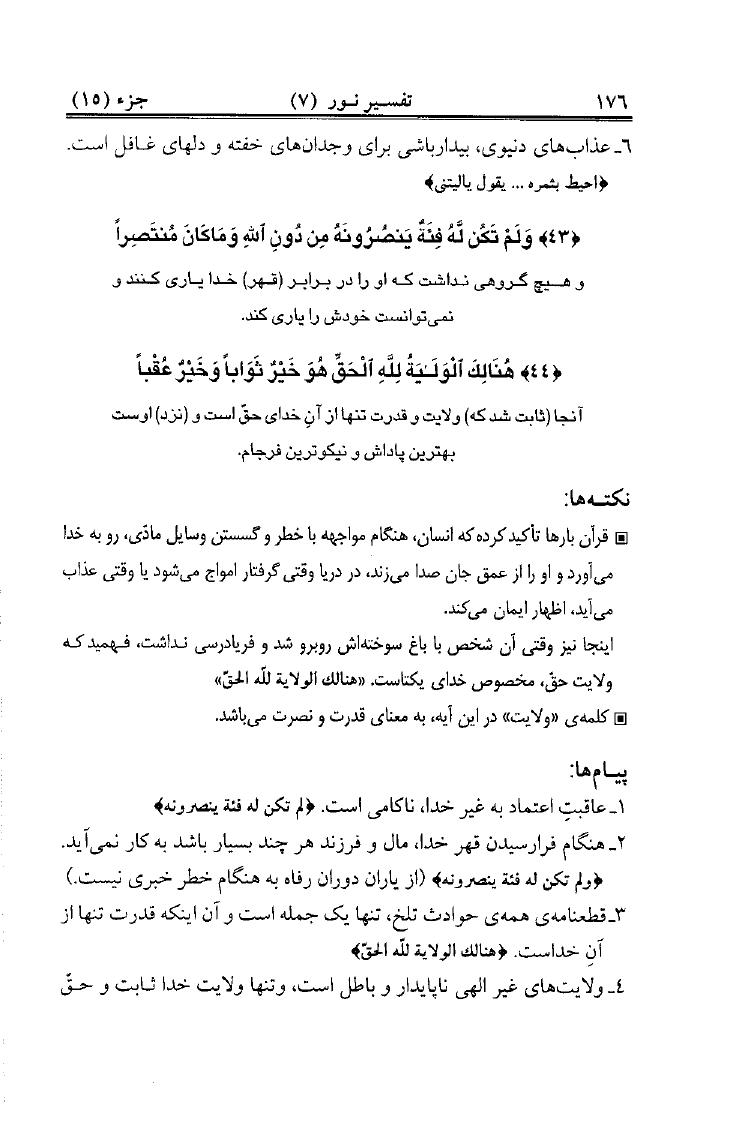 ١٧٦ تفسیر نور (٧) جزء (١٥)
٦ـ عذاب‌های دنیوی، بیدارباشی برای وجدان‌های خفته و دلهای غافل است.
﴿احیط بثمره ... یقول یالیتنی﴾
﴿٤٣﴾ وَلَمْ تَكُن لَّهُ فِئَةٌ يَنصُرُونَهُ مِن دُونِ ٱللهِ وَمَا كَانَ مُنتَصِراً
و هیچ گروهی نداشت که او را در برابر (قهر) خدا یاری کنند و
نمی‌توانست خودش را یاری کند.
﴿٤٤﴾ هُنَالِكَ ٱلْوَلَـٰيَةُ لِلَّهِ ٱلْحَقِّ هُوَ خَيْرٌ ثَوَاباً وَخَيْرٌ عُقْباً
آنجا (ثابت شد که) ولایت و قدرت تنها از آنِ خدای حقّ است و (نزد) اوست
بهترین پاداش و نیکوترین فرجام.
نکته‌ها:
▣ قرآن بارها تأکید کرده که انسان، هنگام مواجهه با خطر و گسستن وسایل مادّی، رو به خدا
می‌آورد و او را از عمق جان صدا می‌زند، در دریا وقتی گرفتار امواج می‌شود یا وقتی عذاب
می‌آید، اظهار ایمان می‌کند.
اینجا نیز وقتی آن شخص با باغ سوخته‌اش روبرو شد و فریادرسی نداشت، فهمید که
ولایت حقّ، مخصوص خدای یکتاست. «هنالك الولایة للّه الحقّ»
▣ کلمه‌ی «ولایت» در این آیه، به معنای قدرت و نصرت می‌باشد.
پیام‌ها:
١ـ عاقبتِ اعتماد به غیر خدا، ناکامی است. ﴿لم تكن له فئة ینصرونه﴾
٢ـ هنگام فرارسیدن قهر خدا، مال و فرزند هر چند بسیار باشد به کار نمی‌آید.
﴿ولم تكن له فئة ینصرونه﴾ (از یاران دوران رفاه به هنگام خطر خبری نیست.)
٣ـ قطعنامه‌ی همه‌ی حوادث تلخ، تنها یک جمله است و آن اینکه قدرت تنها از
آنِ خداست. ﴿هنالك الولایة للّه الحقّ﴾
٤ـ ولایت‌های غیر الهی ناپایدار و باطل است، وتنها ولایت خدا ثابت و حقّ